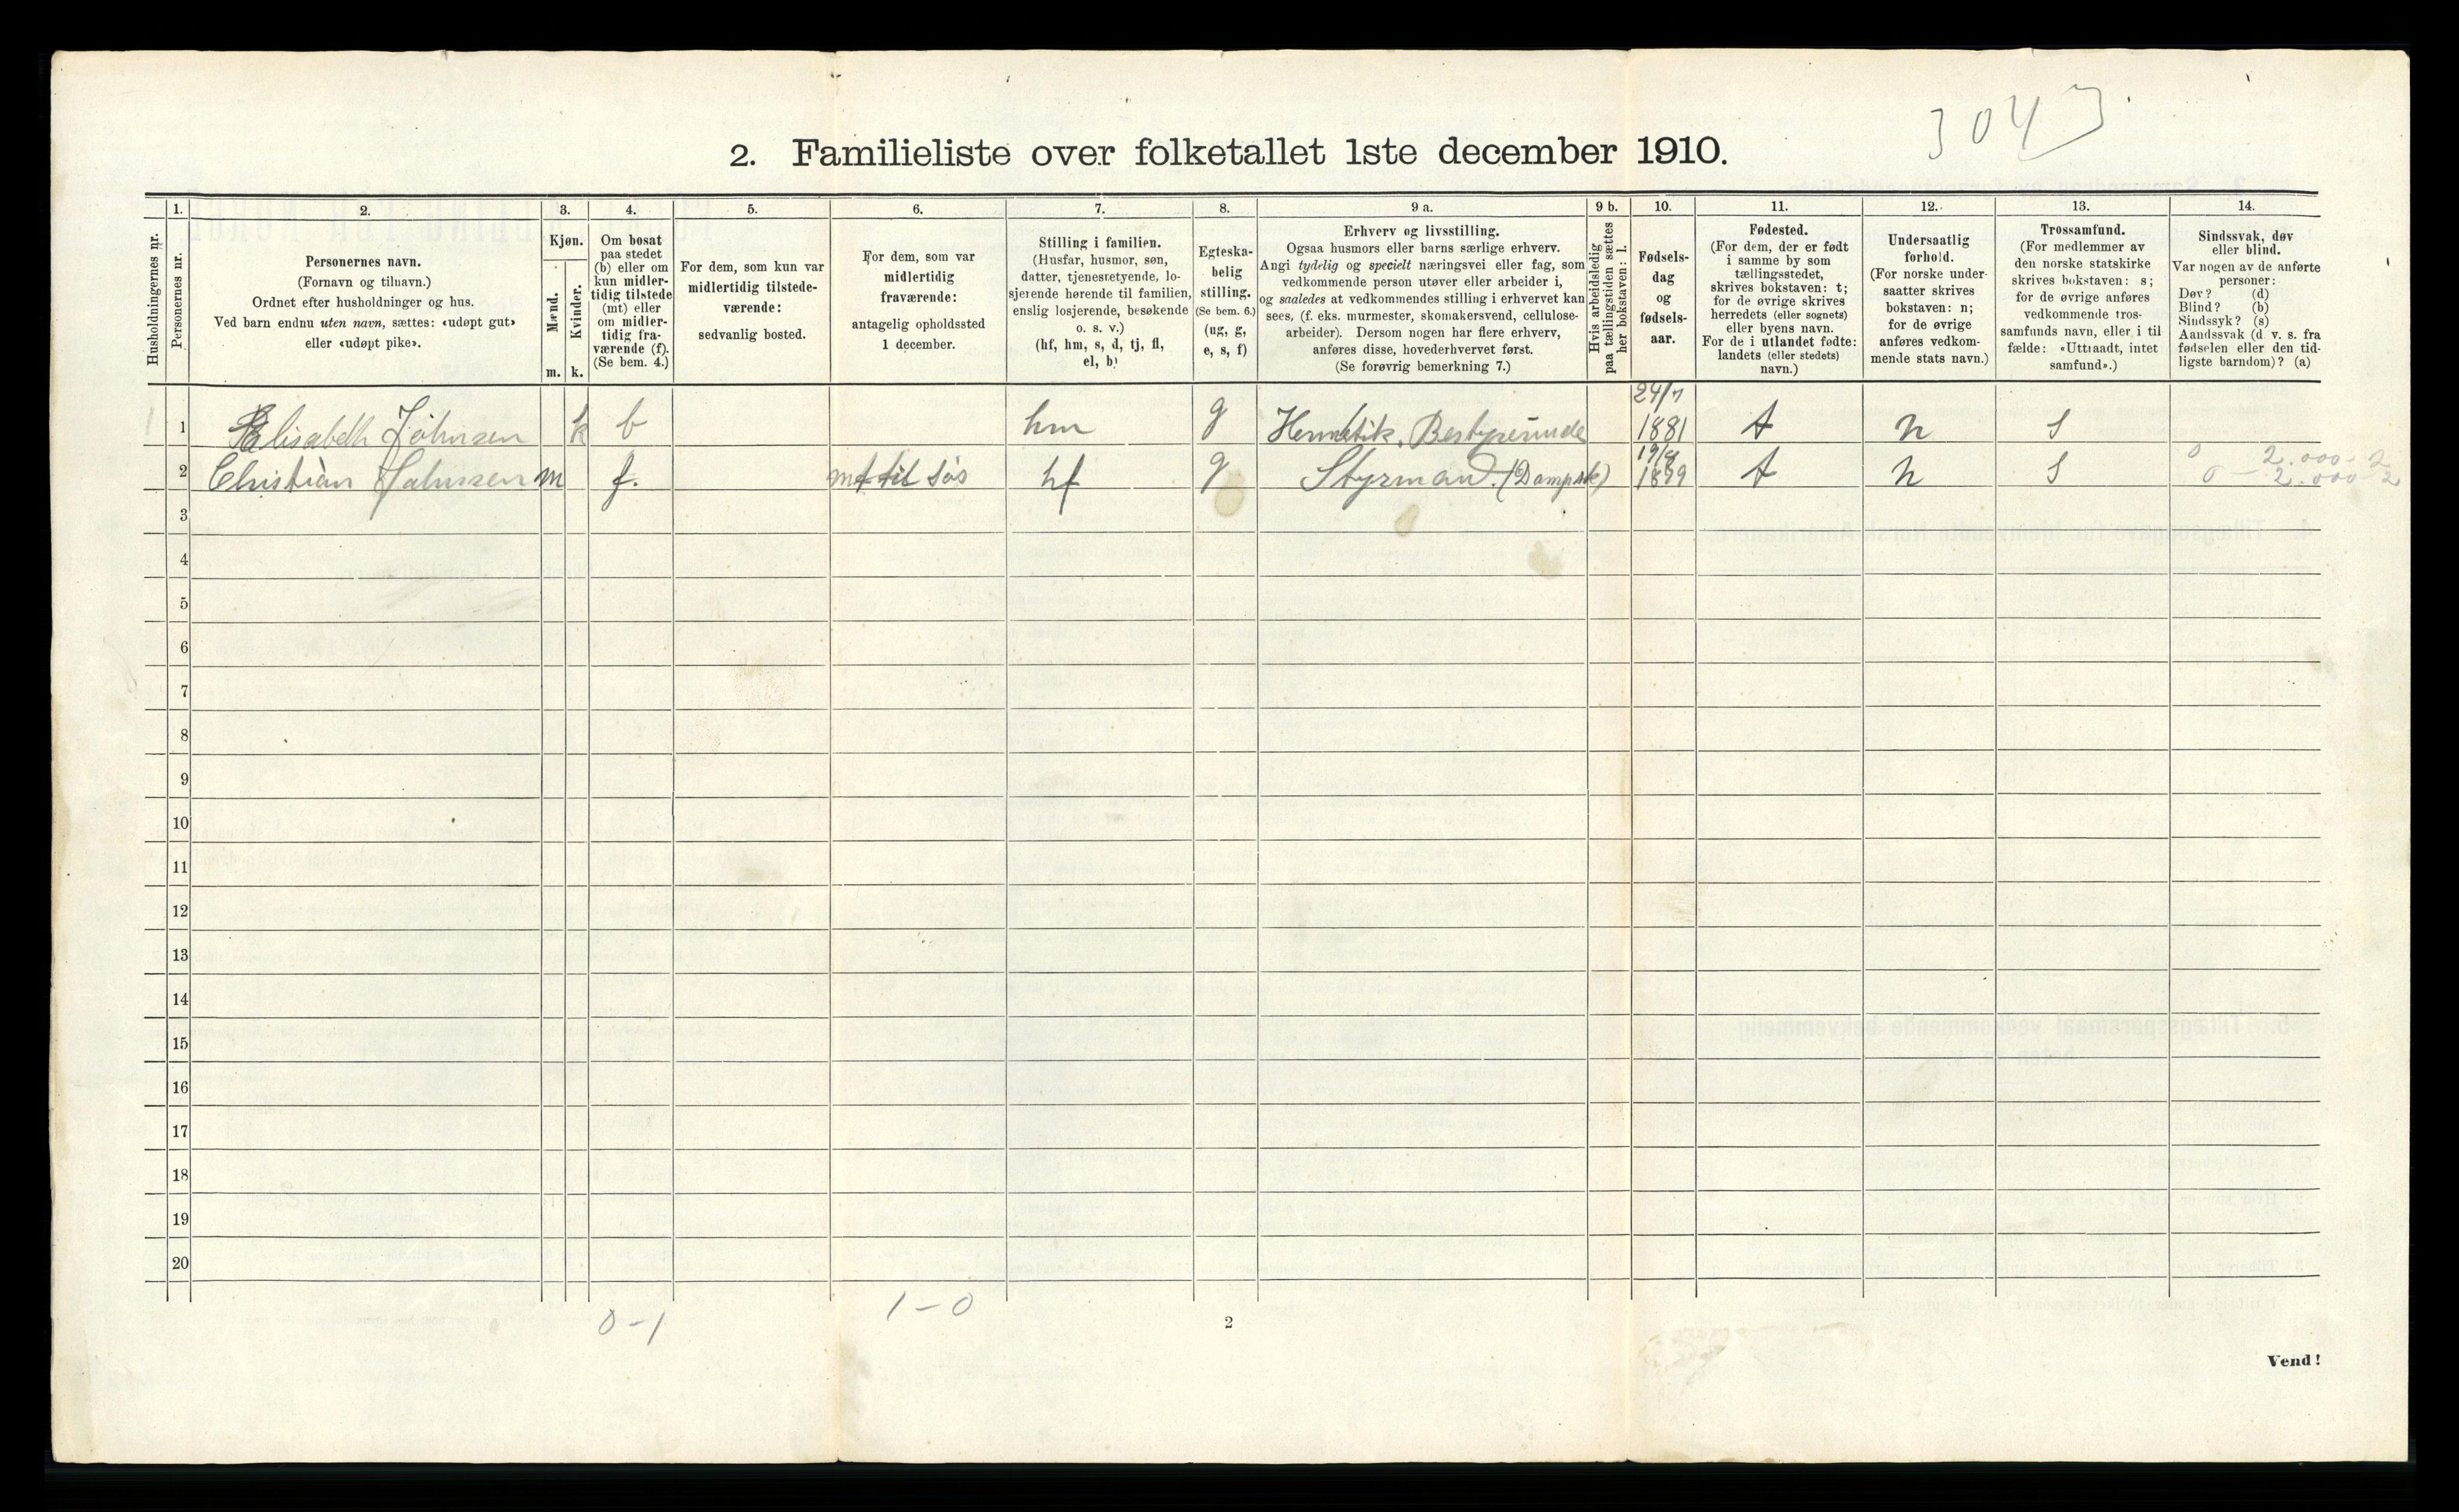 3043
2. Familieliste over folketallet 1ste december 1910.
Husholdningernes nr.
1.
Personernes nr.
2.
Personernes navn.
(Fornavn og tilnavn.)
Ordnet efter husholdninger og hus.
Ved barn endnu uten navn, sættes: «udøpt gut»
eller «udøpt pike».
3.
Kjøn.
Mænd.
Kvinder.
m. k.
4.
Om bosat
paa stedet
(b) eller om
kun midler-
tidig tilstede
(mt) eller
om midler-
tidig fra-
værende (f).
(Se bem. 4.)
5.
For dem, som kun var
midlertidig tilstede-
værende:
sedvanlig bosted.
6.
For dem, som var
midlertidig
fraværende:
antagelig opholdssted
1 december.
7.
Stilling i familien.
(Husfar, husmor, søn,
datter, tjenestetyende, lo-
sjerende hørende til familien,
enslig losjerende, besøkende
o. s. v.)
(hf, hm, s, d, tj, fl,
el, b)
8.
Egteska-
belig
stilling.
(Se bem. 6.)
(ug, g,
e, s, f)
9 a.
Erhverv og livsstilling.
Ogsaa husmors eller barns særlige erhverv.
Angi tydelig og specielt næringsvei eller fag, som
vedkommende person utøver eller arbeider i,
og saaledes at vedkommendes stilling i erhvervet kan
sees, (f. eks. murmester, skomakersvend, cellulose-
arbeider). Dersom nogen har flere erhverv,
anføres disse, hovederhvervet først.
(Se forøvrig bemerkning 7.)
9 b.
Hvis arbeidsledig
paa tællingstiden sættes
her bokstaven: l.
10.
Fødsels-
dag
og
fødsels-
aar.
11.
Fødested.
(For dem, der er født
i samme by som
tællingsstedet,
skrives bokstaven: t;
for de øvrige skrives
herredets (eller sognets)
eller byens navn.
For de i utlandet fødte:
landets (eller stedets)
navn.)
12.
Undersaatlig
forhold.
(For norske under-
saatter skrives
bokstaven: n;
for de øvrige
anføres vedkom-
mende stats navn.)
13.
Trossamfund.
(For medlemmer av
den norske statskirke
skrives bokstaven: s;
for de øvrige anføres
vedkommende tros-
samfunds navn, eller i til
fælde: «Uttraadt, intet
samfund».)
14.
Sindssvak, døv
eller blind.
Var nogen av de anførte
personer:
Døv? (d)
Blind? (b)
Sindssyk? (s)
Aandssvak (d. v. s. fra
fødselen eller den tid-
ligste barndom)? (a)
1 Elisabeth Johnsen k b hm g Hermetik. Bestyrerinde 24/7 1881 t n s
2 Christian Johnsen m f. til søs hf g Styrmand. (Dampsk) 19/8 t n s
0 2.000-2
0 — 2.000-2
3
4
5
6
7
8
9
10
11
12
13
14
15
16
17
18
19
20
0-1
1-0
2
Vend!